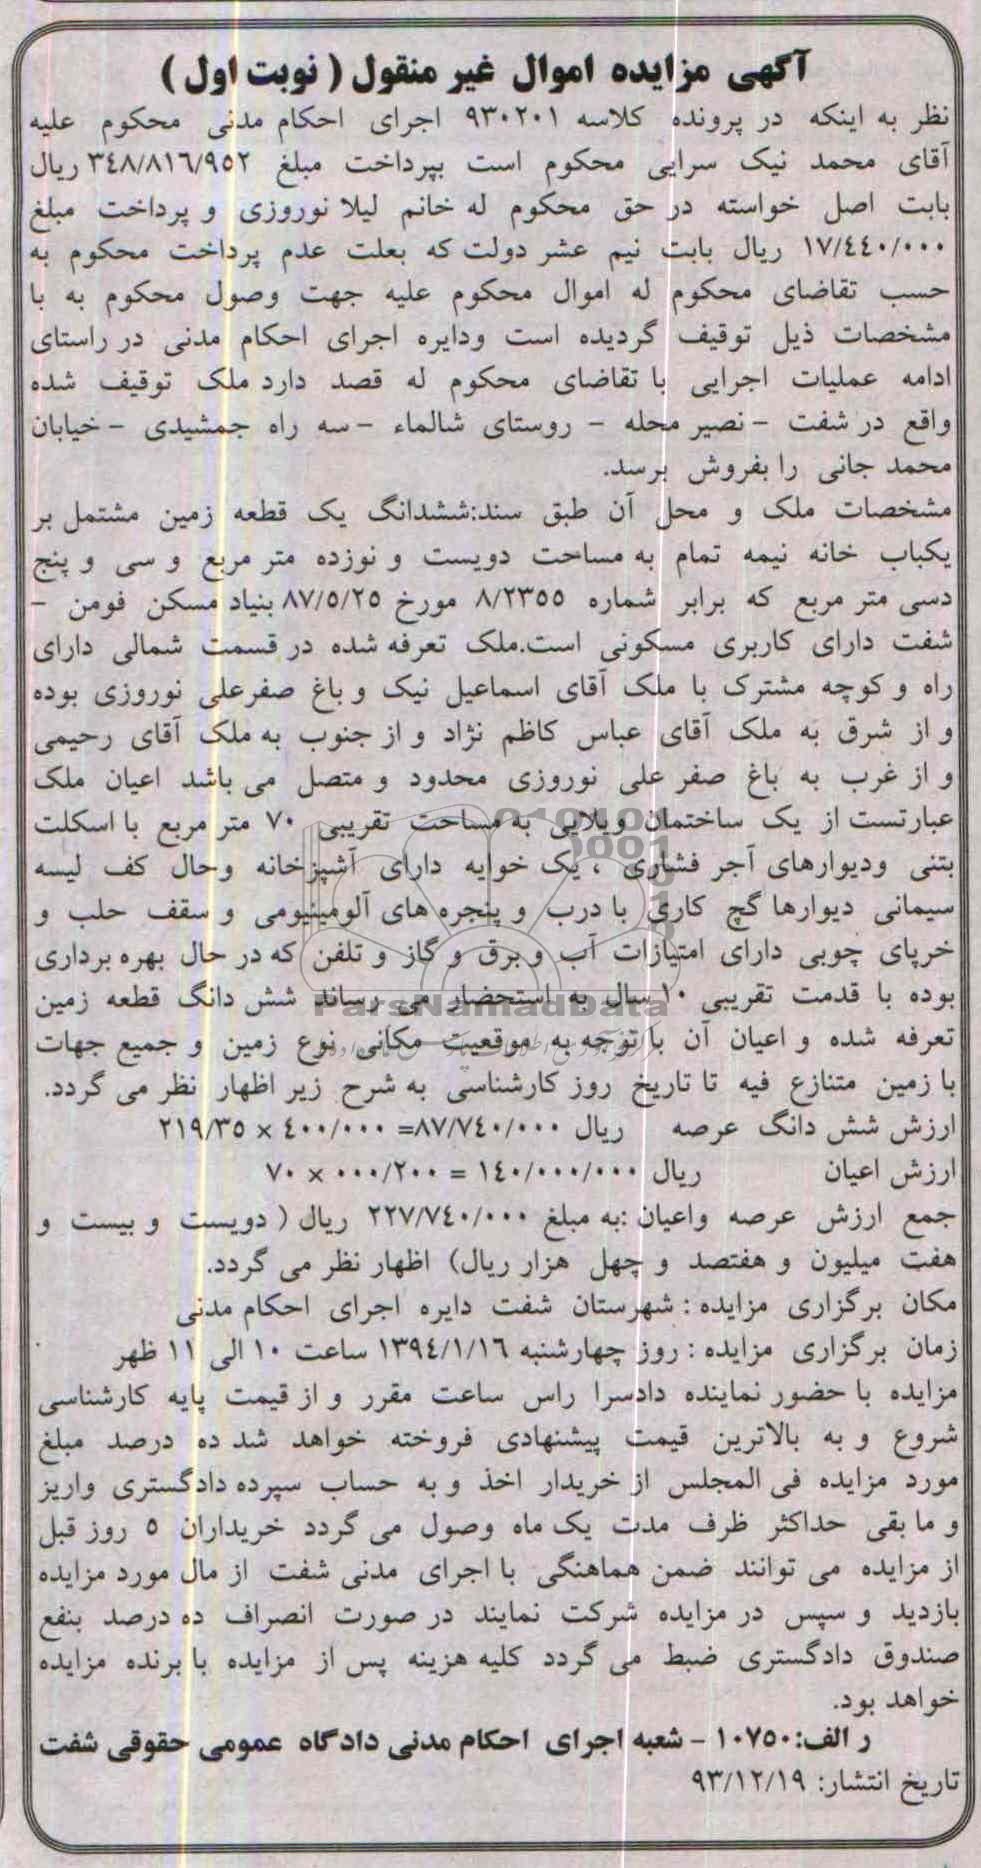 آگهی مزایده اموال غیر منقول ( نوبت اول )
نظر به اینکه در پرونده کلاسه ۹۳۰۲۰۱ اجرای احکام مدنی محکوم علیه
آقای محمد نیک سرایی محکوم است بپرداخت مبلغ ۳۴۸/۸۱۶/۹۵۲ ریال
بابت اصل خواسته در حق محکوم له خانم لیلا نوروزی و پرداخت مبلغ
۱۷/۴۴۰/۰۰۰ ریال بابت نیم عشر دولت که بعلت عدم پرداخت محکوم به
حسب تقاضای محکوم له اموال محکوم علیه جهت وصول محکوم به با
مشخصات ذیل توقیف گردیده است ودایره اجرای احکام مدنی در راستای
ادامه عملیات اجرایی با تقاضای محکوم له قصد دارد ملک توقیف شده
واقع در شفت - نصیر محله - روستای شالماء - سه راه جمشیدی - خیابان
محمد جانی را بفروش برسد.
مشخصات ملک و محل آن طبق سند:ششدانگ یک قطعه زمین مشتمل بر
یکباب خانه نیمه تمام به مساحت دویست و نوزده متر مربع و سی و پنج
دسی متر مربع که برابر شماره ۸/۲۳۵۵ مورخ ۸۷/۵/۲۵ بنیاد مسکن فومن -
شفت دارای کاربری مسکونی است.ملک تعرفه شده در قسمت شمالی دارای
راه و کوچه مشترک با ملک آقای اسماعیل نیک و باغ صفرعلی نوروزی بوده
و از شرق به ملک آقای عباس کاظم نژاد و از جنوب به ملک آقای رحیمی
و از غرب به باغ صفر علی نوروزی محدود و متصل می باشد اعیان ملک
عبارتست از یک ساختمان ویلایی به مساحت تقریبی ۷۰ متر مربع با اسکلت
بتنی ودیوارهای آجر فشاری ، یک خوابه دارای آشپزخانه وحال کف لیسه
سیمانی دیوارها گچ کاری با درب و پنجره های آلومینیومی و سقف حلب و
خرپای چوبی دارای امتیازات آب و برق و گاز و تلفن که در حال بهره برداری
بوده با قدمت تقریبی ۱۰ سال به استحضار می رساند شش دانگ قطعه زمین
ParsNamadData
تعرفه شده و اعیان آن با توجه به موقعیت مکانی نوع زمین و جمیع جهات
با زمین متنازع فیه تا تاریخ روز کارشناسی به شرح زیر اظهار نظر می گردد.
ارزش شش دانگ عرصه ریال ۸۷/۷۴۰/۰۰۰= ۴۰۰/۰۰۰ × ۲۱۹/۳۵
ارزش اعیان ریال ۱۴۰/۰۰۰/۰۰۰ = ۰۰۰/۲۰۰ × ۷۰
جمع ارزش عرصه واعیان :به مبلغ ۲۲۷/۷۴۰/۰۰۰ ریال ( دویست و بیست و
هفت میلیون و هفتصد و چهل هزار ریال) اظهار نظر می گردد.
مکان برگزاری مزایده : شهرستان شفت دایره اجرای احکام مدنی
زمان برگزاری مزایده : روز چهارشنبه ۱۳۹۴/۱/۱۶ ساعت ۱۰ الی ۱۱ ظهر
مزایده با حضور نماینده دادسرا راس ساعت مقرر و از قیمت پایه کارشناسی
شروع و به بالاترین قیمت پیشنهادی فروخته خواهد شد ده درصد مبلغ
مورد مزایده فی المجلس از خریدار اخذ و به حساب سپرده دادگستری واریز
و ما بقی حداکثر ظرف مدت یک ماه وصول می گردد خریداران ۵ روز قبل
از مزایده می توانند ضمن هماهنگی با اجرای مدنی شفت از مال مورد مزایده
بازدید و سپس در مزایده شرکت نمایند در صورت انصراف ده درصد بنفع
صندوق دادگستری ضبط می گردد کلیه هزینه پس از مزایده با برنده مزایده
خواهد بود.
ر الف:۱۰۷۵۰ - شعبه اجرای احکام مدنی دادگاه عمومی حقوقی شفت
تاریخ انتشار: ۹۳/۱۲/۱۹